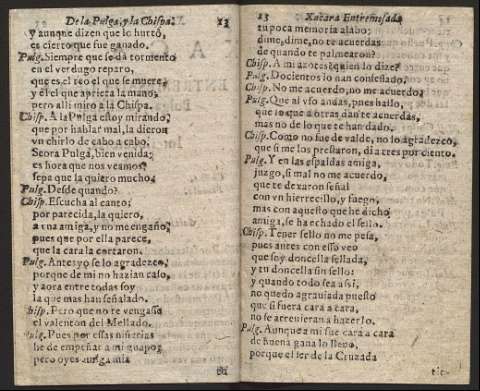 De la Pulga, y la Chispa. 13
y aunque dizen que lo hurtò,
es cierto que fue ganado.
Pulg. Siempre que se dà tormento
en el verdugo reparo,
que es el reo el que se muere,
y èl el que aprieta la mano,
pero alli miro a la Chispa.
Chisp. A la Pulga estoy mirando,
que por hablar mal, la dieron
vn chirlo de cabo a cabo;
Seora Pulga, bien venida,
es hora que nos veamos?
sepa que la quiero mucho.
Pulg. Desde quando?
Chisp. Escucha al canto,
por parecida, la quiero,
a vna amiga, y no me engaño,
pues que por ella parece,
que la cara la cortaron.
Pulg. Antes yo se lo agradezco,
porque de mi no hazian caso,
y aora entre todas soy
la que mas han señalado.
Chisp. Pero que no te vengasse
el valenton del Mellado.
Pulg. Pues por essas niñerias
he de empeñar a mi guapo?
pero oyes amiga mia
tu
13 Xacara Entremesada
tu poca memoria alabo;
dime, dime, no te acuerdas
de quando te palmearon?
Chisp. A mi azotes? quien lo dize?
Pulg. Docientos lo han confessado.
Chisp. No me acuerdo, no me acuerdo,
Pulg. Que al vso andas, pues hallo,
que lo que a otras dan te acuerdas,
mas no de lo que te han dado.
Chisp. Como no fue de valde, no lo agradezco,
que si me los prestaron, di a tres por ciento.
Pulg. Y en las espaldas amiga,
juzgo, si mal no me acuerdo,
que te dexaron señal
con vn hierrecillo, y fuego,
mas con aquesto que he dicho
amiga, se ha echado el sello.
Chisp. Tener sello no me pesa,
pues antes con esso veo
que soy doncella sellada,
y tu doncella sin sello:
y quando todo sea assi,
no quedo agrauiada puesto
que si fuera cara a cara,
no se atreuieran a hazerlo.
Pulg. Aunque a mi fue cara a cara
de buena gana lo lleuo,
porque el ser de la Cruzada